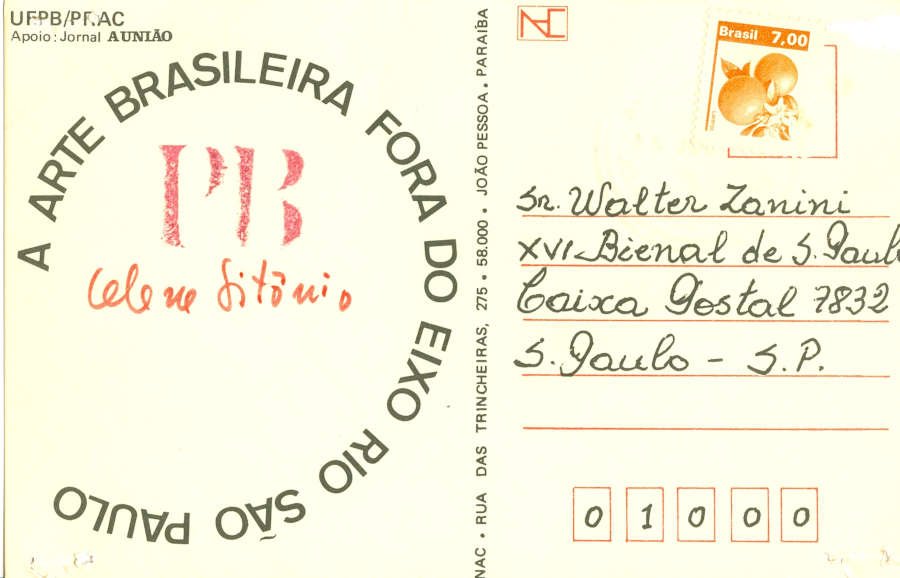 UFPB/PRAC
Apoio: Jornal A UNIÃO
A ARTE BRASILEIRA FORA DO EIXO RIO SÃO PAULO
PB
Celene Sitônio
NAC • RUA DAS TRINCHEIRAS, 275 • 58.000 • JOÃO PESSOA • PARAÍBA
NAC
Brasil 7,00
Sr. Walter Zanini
XVI Bienal de S. Paulo
Caixa Postal 7832
S. Paulo - S.P.
0 1 0 0 0